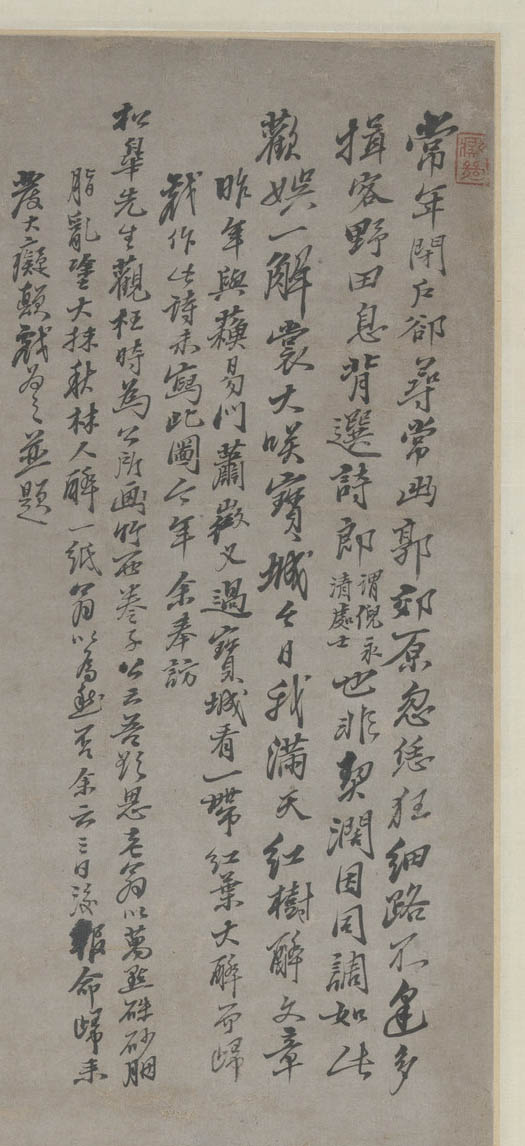 常年閉戶卻尋常出郭郊原忽恁狂細路不逢多
揖客野田息背選詩郎謂倪永清處士也非契闊因同調如此
歡娛一解裳大咲寶城今日我滿天紅樹醉文章
昨年與蘓易門蕭徵乂過寶城看一帶紅葉大醉而歸
戲作此詩未寫此圖今年余奉訪
松皋先生觀枉時為公所畫竹西卷子公云吾欲思老翁以萬點硃砂胭
脂亂塗大抹秋林人醉一紙翁以為然否余云三日後報命歸來
發大癡顛戲為之並題